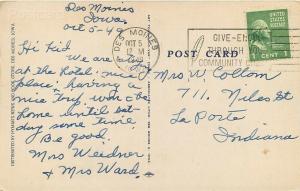 Des Moines
Iowa
Oct 5-49
Hi Kid We are
at the hotel. nice
place, having a
nice time, won't be
home until Sat-
day some time.
Be good.
Mrs Weidner
& Mrs Ward.
DES MOINES
OCT 5
12 M
GIVE-ENOUGH
THROUGH YOUR
COMMUNITY
POST CARD
1 CENT 1
Mrs W. Collom
711. Niles St
La Porte
Indiana